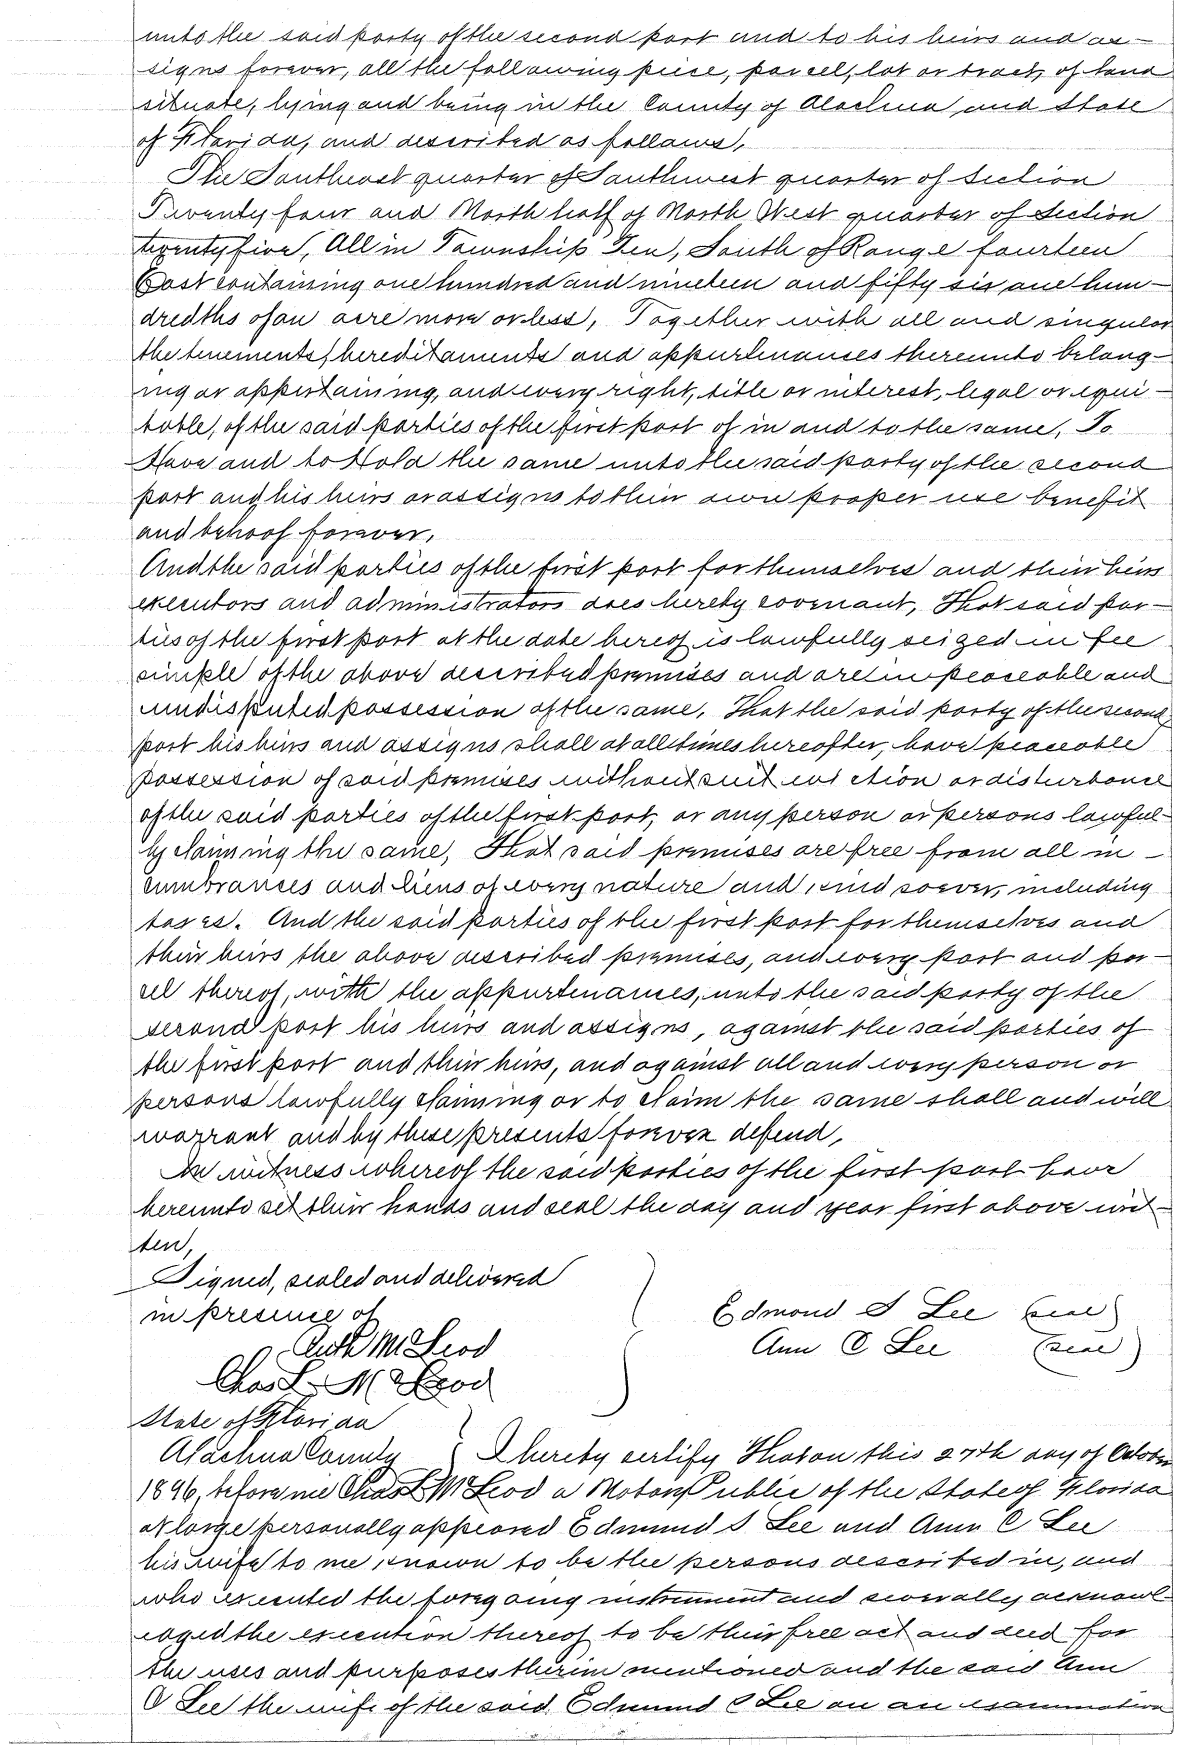 unto the said party of the second part and to his heirs and as-
signs forever, all the following piece, parcel, lot or tract, of land
situate, lying and being in the County of Alachua and State
of Florida, and described as follows,
The Southeast quarter of Southwest quarter of Section
Twenty four and North half of North West quarter of Section
twenty five, All in Township Ten, South of Range fourteen
East containing one hundred and nineteen and fifty six one hun-
dredths of an acre more or less, Together with all and singular
the tenements, hereditaments and appurtenances thereunto belong-
ing or appertaining, and every right, title or interest, legal or equi-
table, of the said parties of the first part of in and to the same, To
Have and to Hold the same unto the said party of the second
part and his heirs or assigns to their own proper use benefit
and behoof forever,
And the said parties of the first part for themselves and their heirs
executors and administrators does hereby covenant, That said par-
ties of the first part at the date hereof is lawfully seized in fee
simple of the above described premises and are in peaceable and
undisputed possession of the same, That the said party of the second
part his heirs and assigns shall at all times hereafter, have peaceable
possession of said premises without suit eviction or disturbance
of the said parties of the first part, or any person or persons lawful-
ly claiming the same, That said premises are free from all in-
cumbrances and liens of every nature and kind soever, including
taxes. And the said parties of the first part for themselves and
their heirs the above described premises, and every part and par-
cel thereof, with the appurtenances, unto the said party of the
second part his heirs and assigns, against the said parties of
the first part and their heirs, and against all and every person or
persons lawfully claiming or to claim the same shall and will
warrant and by these presents forever defend,
In witness whereof the said parties of the first part have
hereunto set their hands and seal the day and year first above writ-
ten,
Signed, sealed and delivered
in presence of
Edmond S Lee (seal)
Ruth McLeod
Ann C Lee (seal)
Chas L. McLeod
State of Florida
Alachua County I hereby certify That on this 27th day of October
1896, before me Chas L McLeod a Notary Public of the State of Florida
at large personally appeared Edmund S Lee and Ann C Lee
his wife to me known to be the persons described in, and
who executed the foregoing instrument and severally acknowl-
edged the execution thereof to be their free act and deed for
the uses and purposes therein mentioned and the said Ann
C Lee the wife of the said Edmund S Lee on an examination